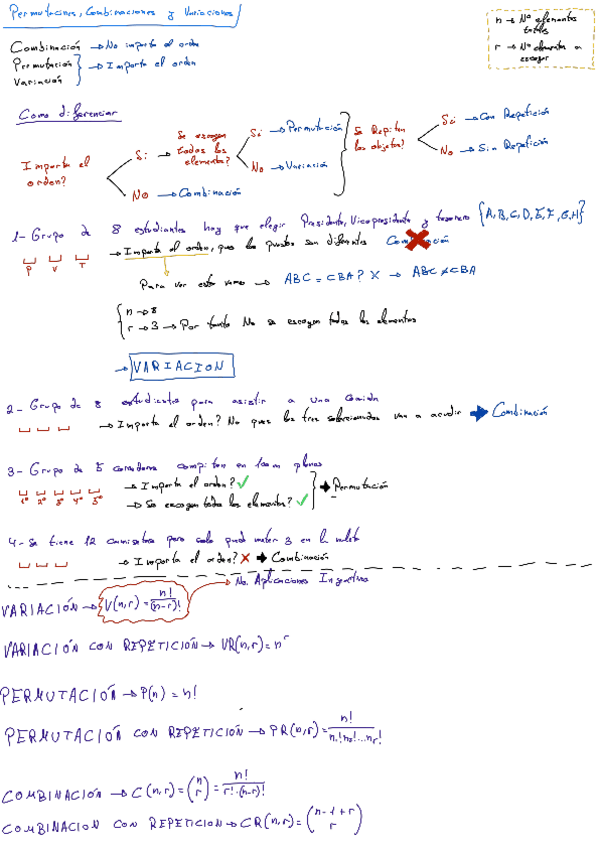 Permutaciones, Combinaciones y Variaciones
n → Nº elementos totales
r → Nº elementos a escoger
Combinación → No importa el orden
Permutación
Variación
→ Importa el orden
Como diferenciar
Importa el orden?
Si →
No → Combinación
Se escogen todos los elementos?
Si → Permutación
No → Variación
Se Repiten los objetos?
Si → Con Repetición
No → Sin Repetición
1- Grupo de 8 estudiantes hay que elegir Presidente, Vicepresidente y tesorero {A,B,C,D,E,F,G,H}
P V T
→ Importa el orden, pues los puestos son diferentes
Para ver esto vemos → ABC = CBA? X → ABC ≠ CBA
n → 8
r → 3 → Por tanto No se escogen todos los elementos
→ VARIACION
2- Grupo de 8 estudiantes para asistir a una comida
→ Importa el orden? No pues los tres seleccionados van a acudir → Combinación
3- Grupo de 5 corredores compiten en 100m planos
1º 2º 3º 4º 5º
→ Importa el orden? ✓
→ Se escogen todos los elementos? ✓
→ Permutación
4- Se tiene 12 camisetas pero solo puede meter 3 en la maleta
→ Importa el orden? X → Combinación
VARIACIÓN → V(n,r) = n!/(n-r)!
→ No. Aplicaciones Inyectivas
VARIACIÓN CON REPETICIÓN → VR(n,r) = n^r
PERMUTACIÓN → P(n) = n!
PERMUTACIÓN CON REPETICIÓN → PR(n,r) = n!/n₁!n₂!...nᵣ!
COMBINACIÓN → C(n,r) = (n r) = n!/r!·(n-r)!
COMBINACION CON REPETICION → CR(n,r) = (n-1+r r)